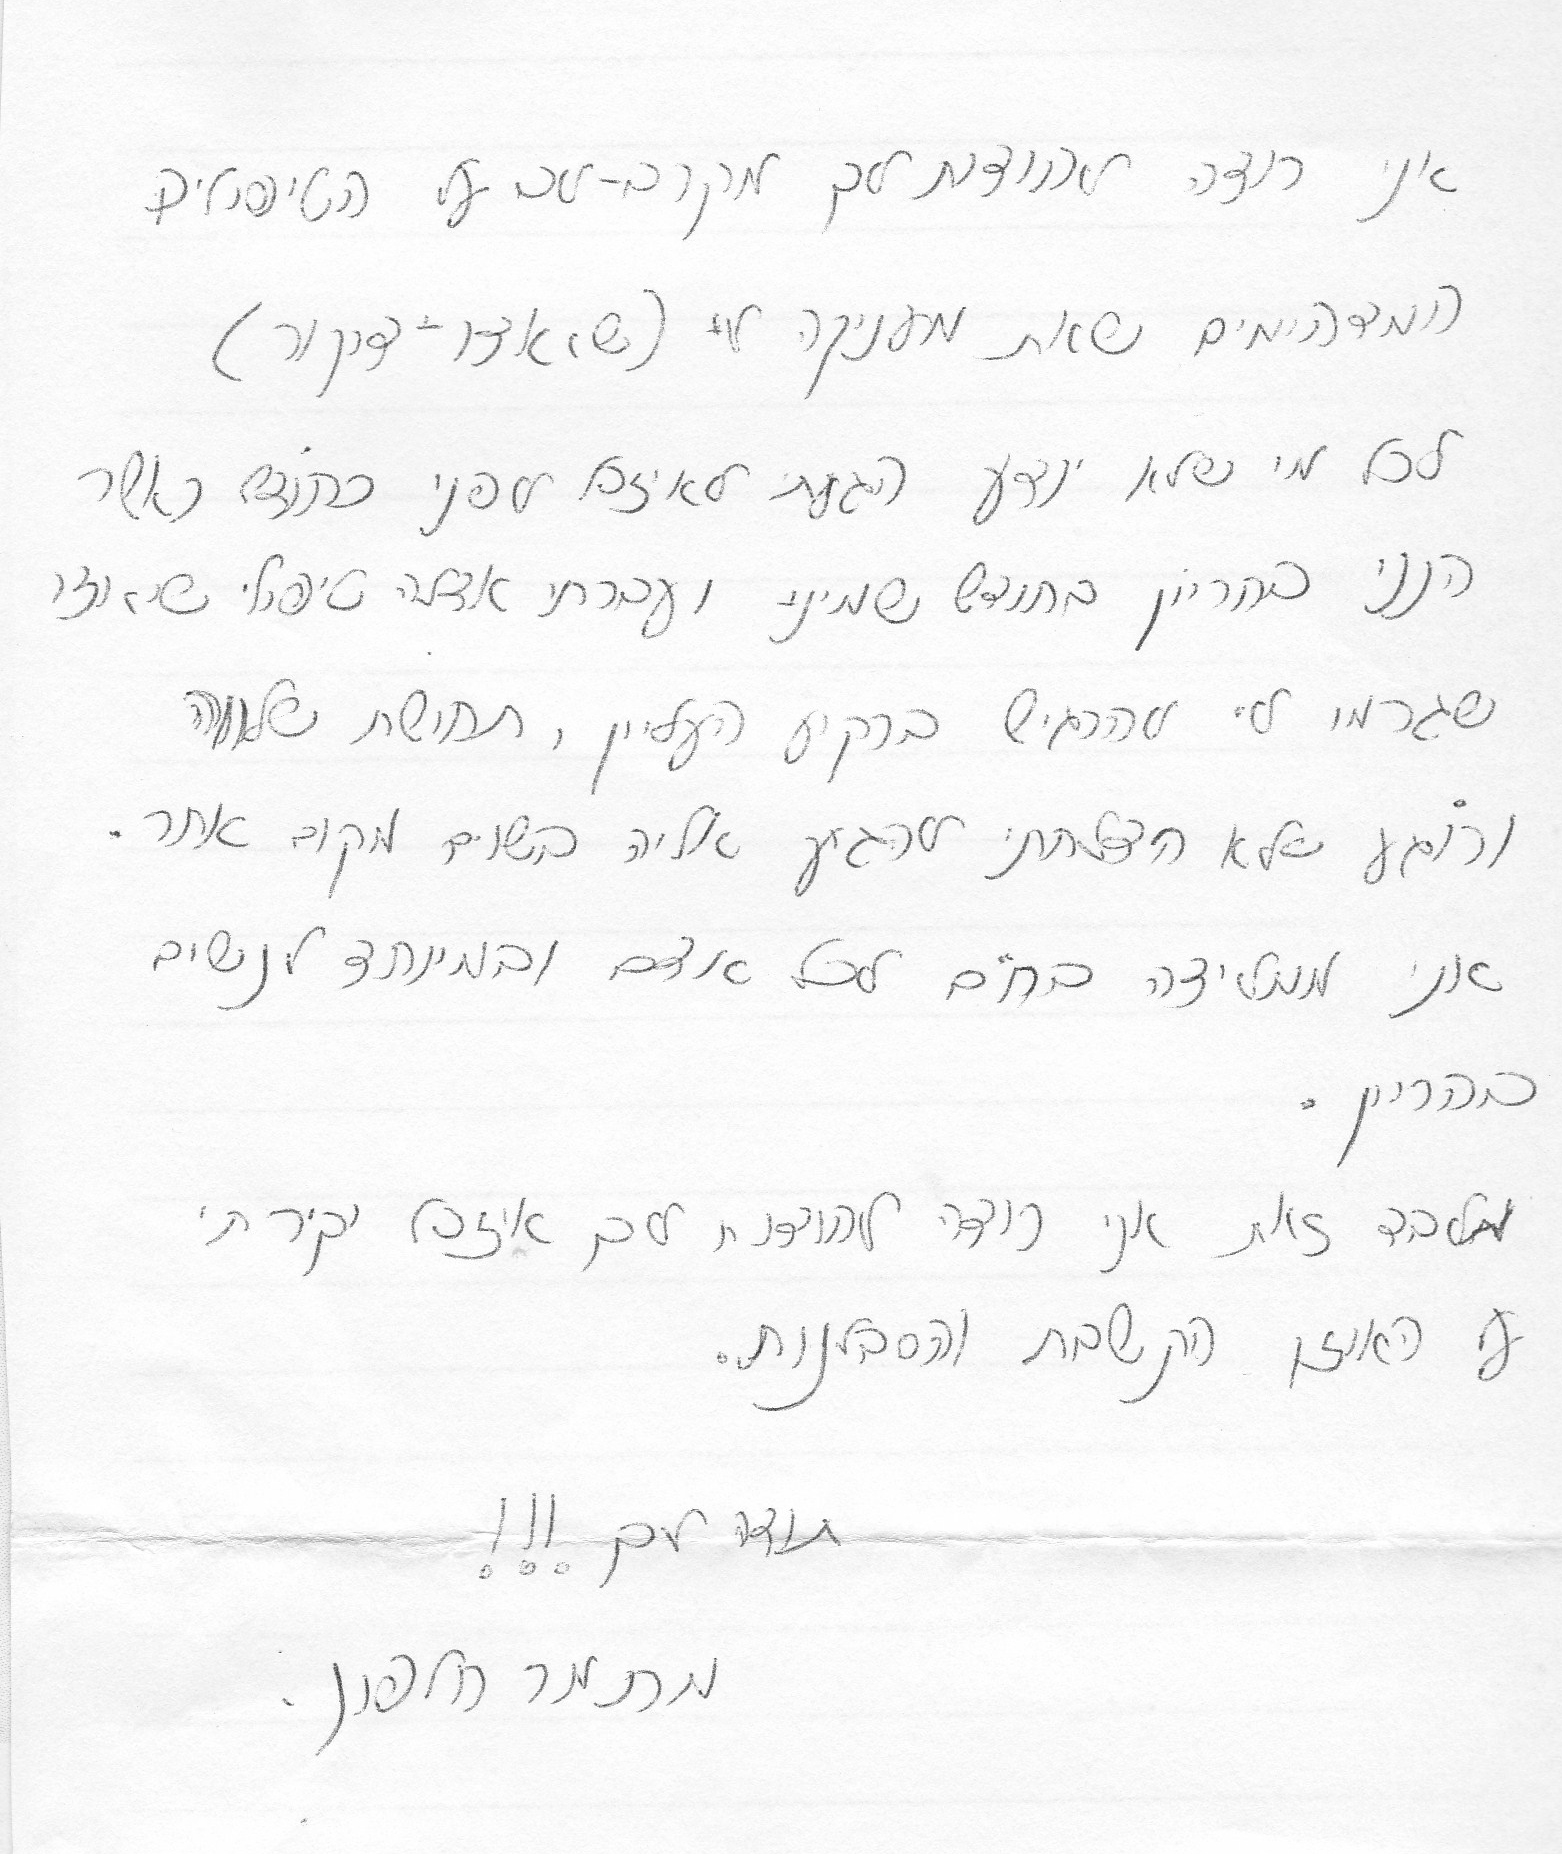 אני רוצה להודות לך מקרב-לב על הטיפולים
המדהימים שאת מעניקה לי (שיאצו-דיקור)
לכל מי שלא יודע הגעתי לאיזבל לפני כחודש כאשר
הנני בהריון בחודש שמיני ועברתי אצלה טיפולי שיאוצו
שגרמו לי להרגיש ברקיע העליון, תחושת שלווה
ורוגע שלא הצלחתי להגיע אליה בשום מקום אחר.
אני ממליצה בחום לכל אדם ובמיוחד לנשים
בהריון.
מלבד זאת אני רוצה להודות לך איזבל יקירתי
על האוזן הקשבת והסבלנות.
תודה לך !!!
חלפון.